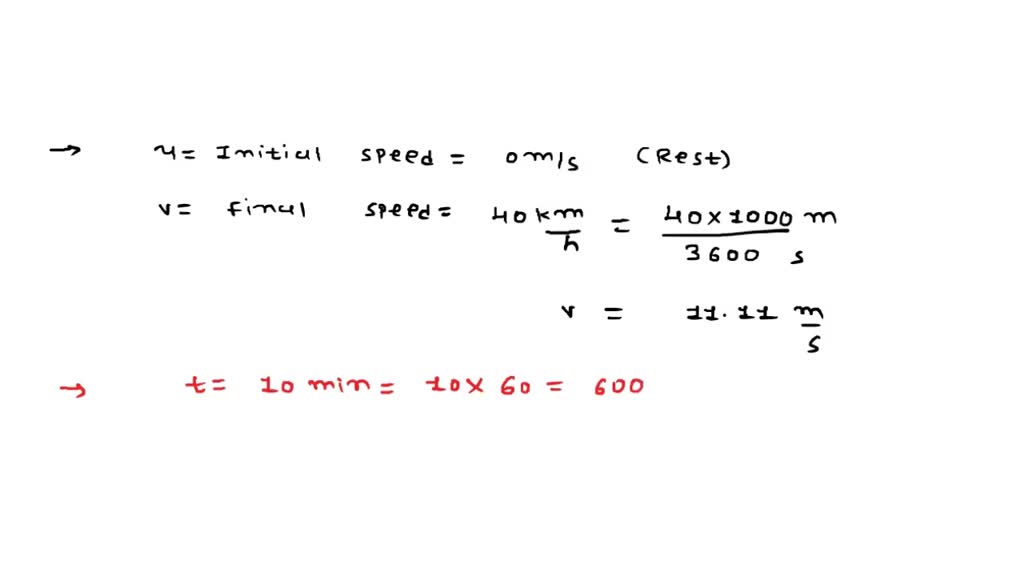 → u = Initial speed = 0 m/s (Rest)
v = final speed = 40 km/h = 40 x 1000 m / 3600 s
v = 11.11 m/s
→ t = 10 min = 10 x 60 = 600